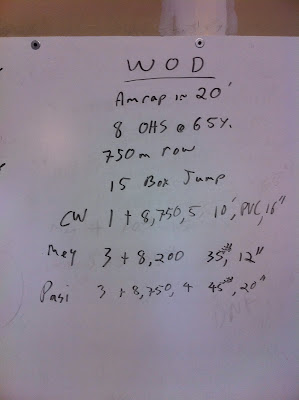 WOD
Amrap in 20'
8 OHS @ 65%.
750m row
15 Box Jump
CW 1 + 8,750,5 10', PVC, 16"
Mey 3 + 8,200 35#, 12"
Pasi 3 + 8,750, 4 45#, 20"